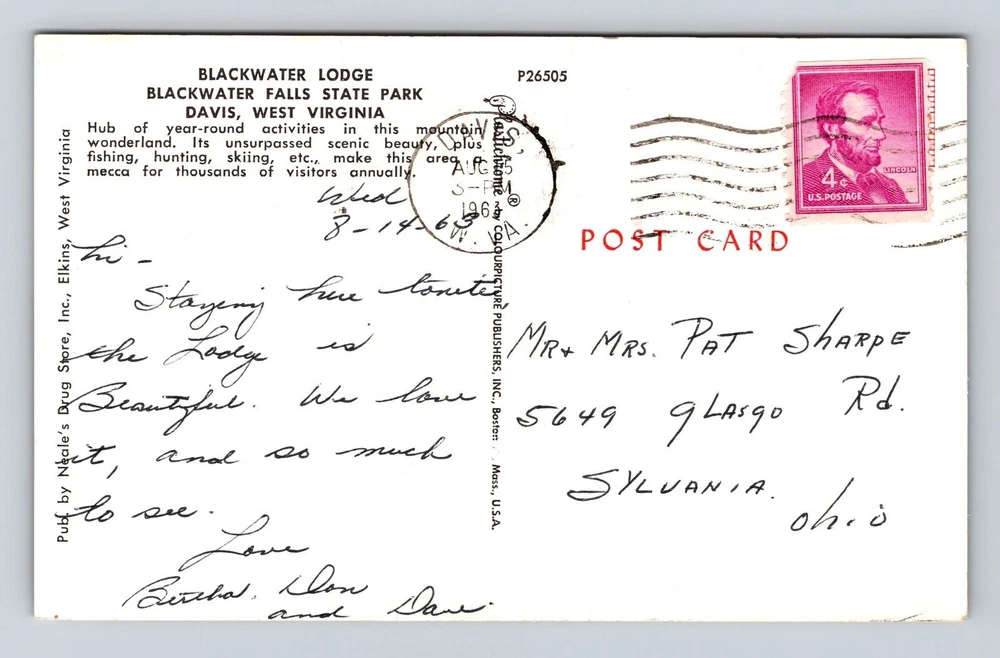 BLACKWATER LODGE
BLACKWATER FALLS STATE PARK
DAVIS, WEST VIRGINIA
Hub of year-round activities in this mountain
wonderland. Its unsurpassed scenic beauty, plus
fishing, hunting, skiing, etc., make this area a
mecca for thousands of visitors annually.
P26505
Wed
8-14-63
Hi -
Staying here tonite,
the Lodge is
Beautiful. We love
it, and so much
to see.
Love
Bertha, Don
and Dave.
Pub. by Neale's Drug Store, Inc., Elkins, West Virginia
Plastichrome ® by COLOURPICTURE PUBLISHERS, INC., Boston, Mass., U.S.A.
DAVIS,
AUG 15
3-PM
1963
W. VA.
4¢
LINCOLN
U.S. POSTAGE
POST CARD
Mr + Mrs. PAT SHARPE
5649 GLASGO Rd.
SYLVANIA.
Ohio